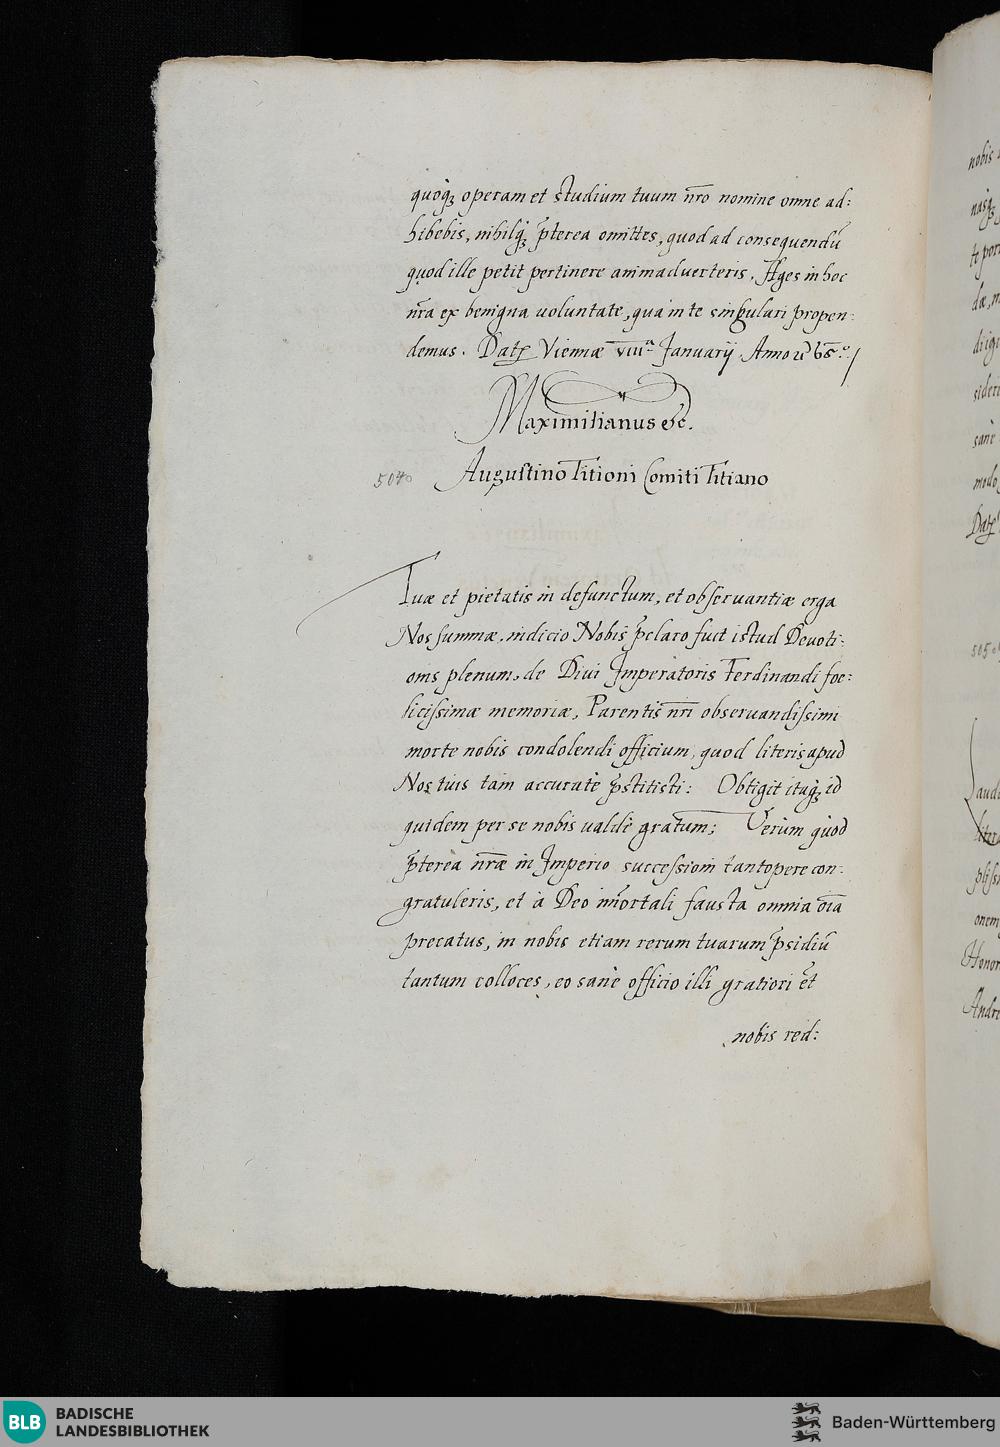 quoq₃ operam et studium tuum nr̄o nomine omne ad:
hibebis, nihilq₃ p̄terea omittes, quod ad consequendū
quod ille petit pertinere animaduerteris. Ages in hoc
nr̄a ex benigna uoluntate, qua in te singulari propen:
demus. Dat Viennæ VIIIIᵃ Januarij Anno 65º./
Maximilianus &c.
5040 Augustino Titioni Comiti Titiano
Tuæ et pietatis in defunctum, et obseruantiæ erga
Nos summæ, indicio Nobis p̄claro fuit istud Deuoti:
onis plenum, de Diui Imperatoris Ferdinandi foe:
licissimæ memoriæ, Parentis nr̄i obseruandissimi
morte nobis condolendi officium, quod literis apud
Nos tuis tam accuratè p̄stitisti: Obtigit itaq₃ id
quidem per se nobis ualdè gratum; Verùm quod
p̄terea nr̄æ in Imperio successioni tantopere con:
gratuleris, et à Deo im̄ortali fausta omnia oīa
precatus, in nobis etiam rerum tuarum p̄sidiū
tantum colloces, eo sanè officio illi gratiori et
nobis red:
nobis
nasq₃
te por
dæ, n
dirigi
sideri
sanè
modo
Dat
505
Laud
liter
pliss
onem
Honor
Andre
BLB BADISCHE
LANDESBIBLIOTHEK
Baden-Württemberg